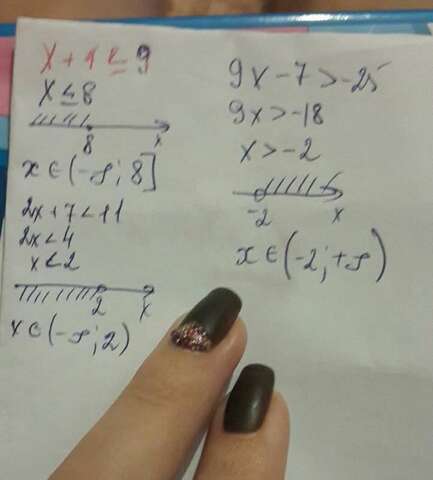 x + 1 ≤ 9
x ≤ 8
8 x
x ∈ (-∞; 8]
2x + 7 < 11
2x < 4
x < 2
2 x
x ∈ (-∞; 2)
9x - 7 > -25
9x > -18
x > -2
-2 x
x ∈ (-2; +∞)